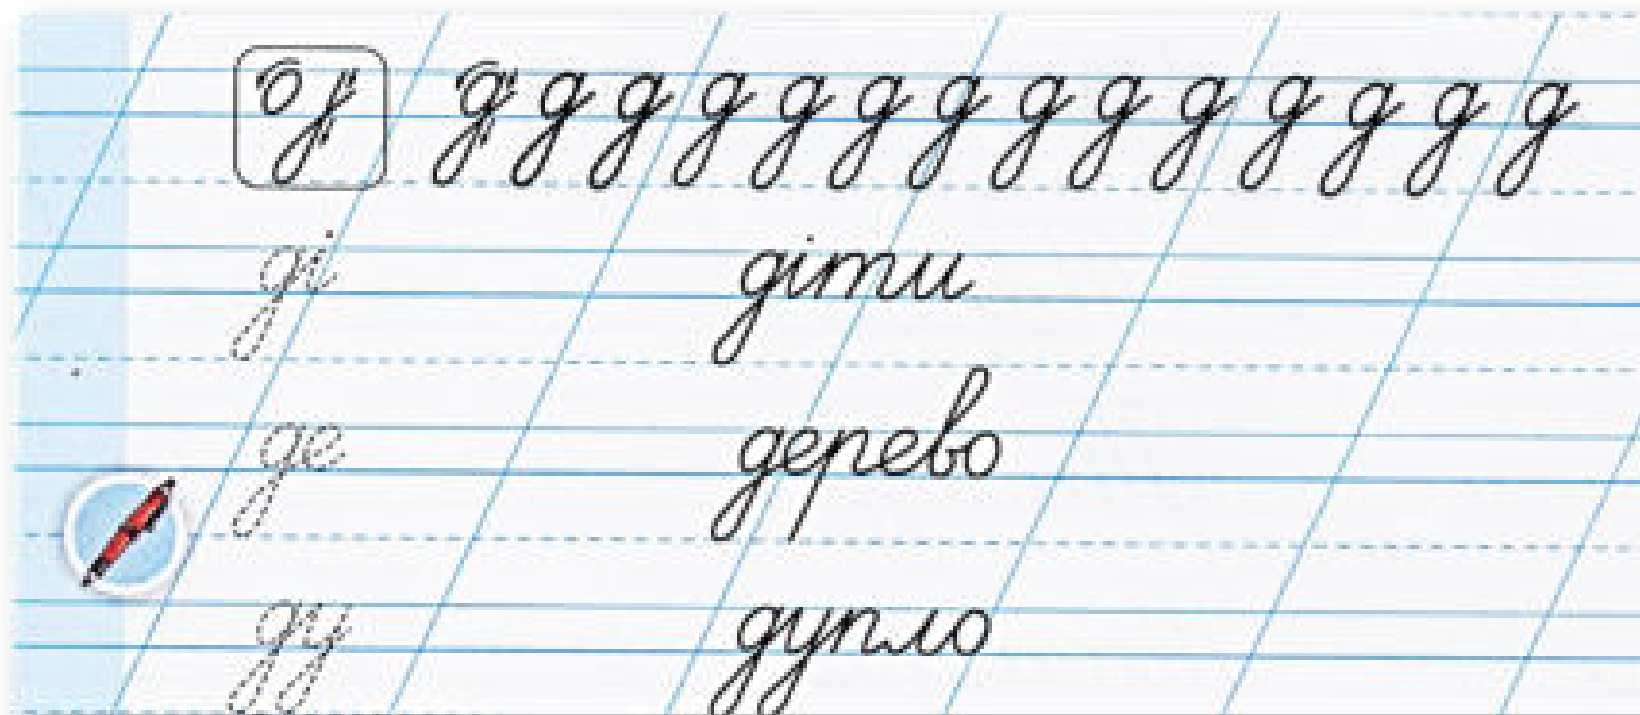 д д д д д д д д д д д д д д д
ді діти
де дерево
ду дупло